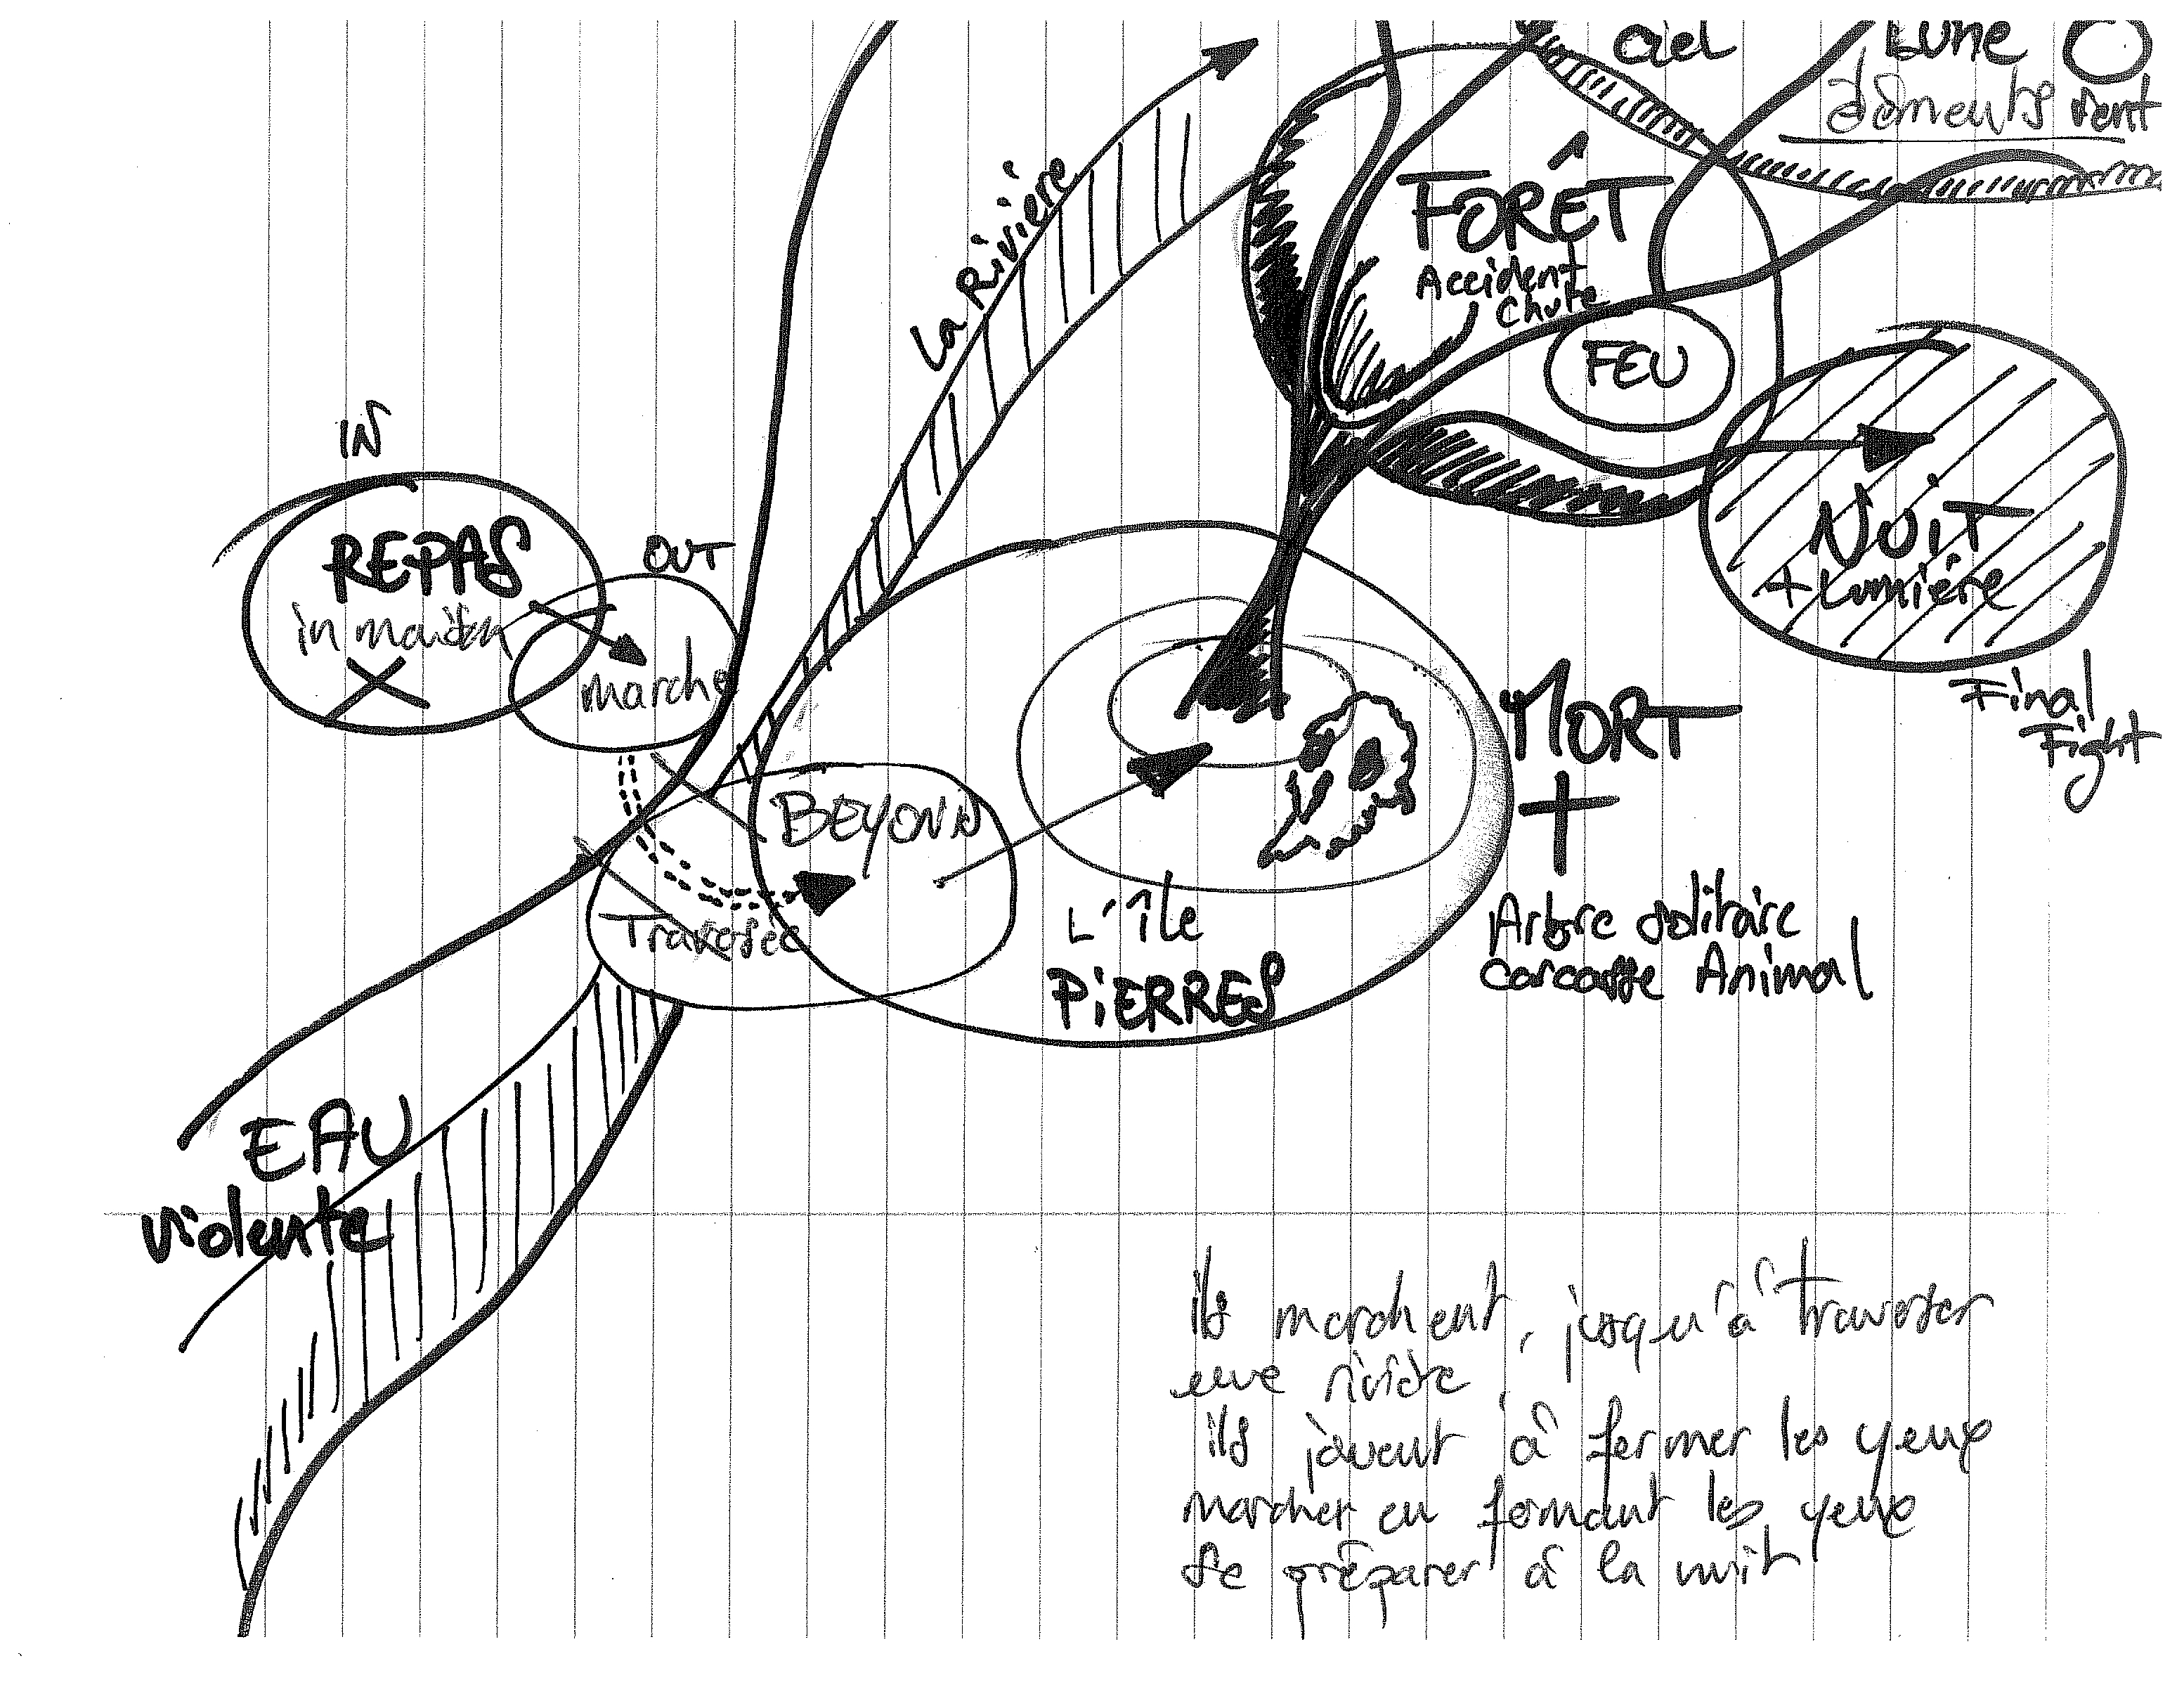 ciel
Lune
éléments vent
La Rivière
FORÊT
Accident
Chute
FEU
IN
REPAS
in
OUT
marche
NUIT
+ Lumière
Final
Fight
MORT
+
Arbre solitaire
carcasse Animal
BEYOND
Traversée
L'île
PiERRES
EAU
violente
ils marchent, jusqu'à traverser
une rivière
ils jouent à fermer les yeux
marcher en fermant les yeux
se préparer à la nuit